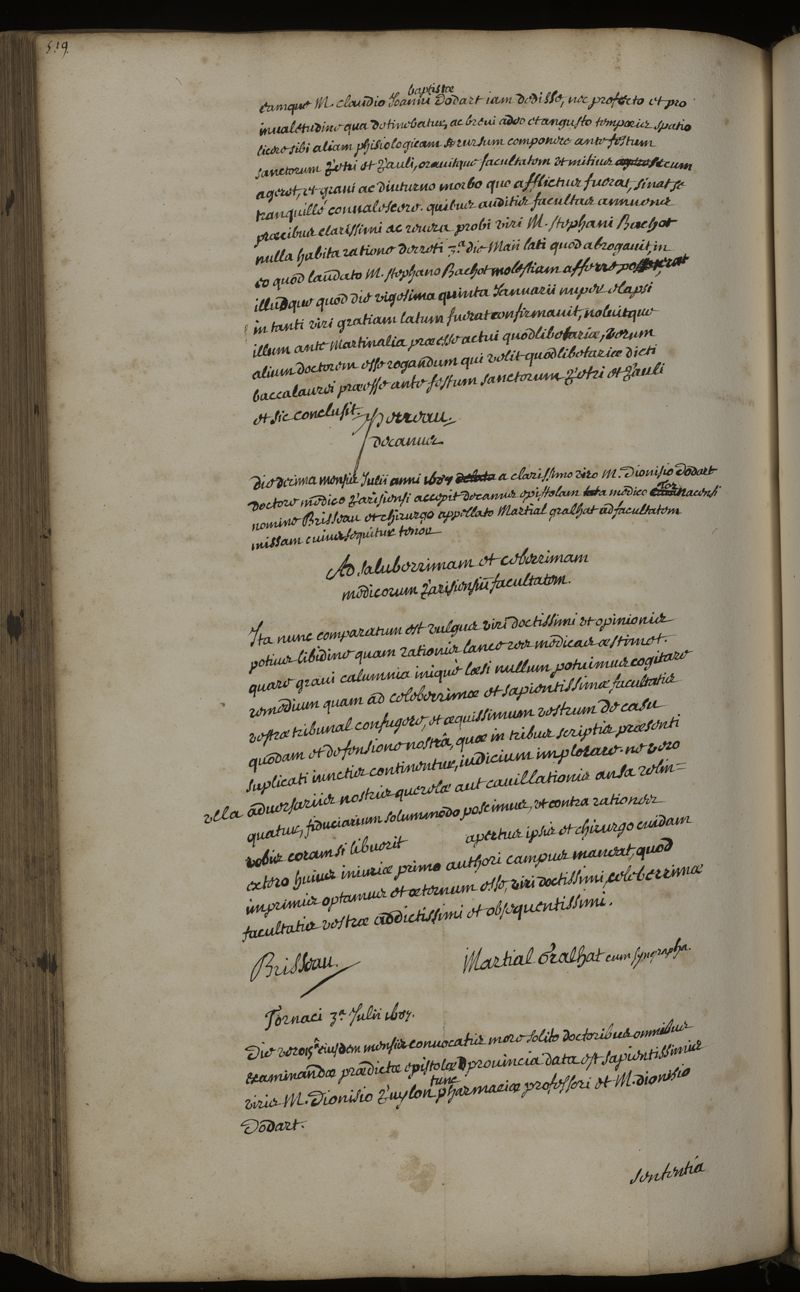 519.
eamque M. claudio Joanni baptistæ Dodart iam dedisse, nec profecto et pro
inualetudine qua detinebatur, ac breui adeo et angusto temporis spatio
licere sibi aliam phisiologicam se rursum componere ante festum
sanctorum petri et pauli, orauitque facultatem ut mitius secum
ageret, et graui ac diuturno morbo quo afflictus fuerat, sinat se
tranquillé conualescere. quibus auditis facultas annuens
precibus clarissimi ac reuera probi viri M. stephani Bachot
nulla habita ratione decreti 3.ª die Maii lati quod abrogauit in
eo quod laudato M. stephano Bachot molestiam afferre posset
illudque quod die vigesima quinta Januarii nuper elapsi
in tanti viri gratiam latum fuerat confirmauit, noluitque
illum ante Martinalia præesse actui quodlibetariæ, verum
alium doctorem esse rogandum qui velit quodlibetariæ dicti
baccalaurei præesse ante festum sanctorum petri et pauli
et sic conclusit.
decanus
Die decima mensis Julii anni 1687 a clarissimo viro M. Dionisio Dodart
doctore medico parisiensi accepit decanus epistolam a medico Tornacensi
nomine Brisseau et chirurgo appellato Martial gralhat ad facultatem
missam cuius sequitur tenor
Ad saluberrimam et celeberrimam
medicorum parisiensiũ facultatem.
Ita nunc comparatum est vulgus viri doctissimi ut opinionis
potius libidine quam rationis lance res medicas æstimet.
quare graui calumnia iniquè læsi nullum potuimus cogitare
remedium quam ad celeberrimæ et sapientissimæ facultatis
vestræ tribunal confugere, et æquissimum vestrum de casu
quodam et defensione nostrâ, quæ in tribus scriptis præsenti
suplicati iunctis continentur, iudicium implorare. ne vero
vlla aduersariis nostris querelæ aut cauillationis ansa relin=
quatur, fiduciarium solummodo poscimus, ut contra rationes
vobis coram si libuerit apertus ipsis et chirurgo cuidam
extero huius iniuriæ primo authori campus maneat, quod
imprimis optamus et æternum esse, viri doctissimi, celeberrimæ
facultatis vestræ addictissimi et obsequentissimi.
Brisseau. Martial Gralhat cum syngrapha.
Tornaci 3.ª Julii 1687.
Die vero 15ª eiusdem mensis conuocatis more solito doctoribus omnibus
examinandæ prædictæ epistolæ prouincia data est sapientissimis
viris M. Dionisio puylon tunc pharmaciæ professori et M. dionisio
Dodart.
sententia